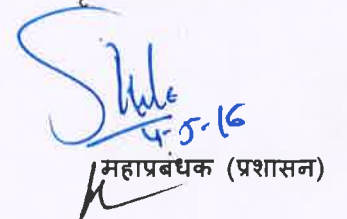 4-5-16
महाप्रबंधक (प्रशासन)